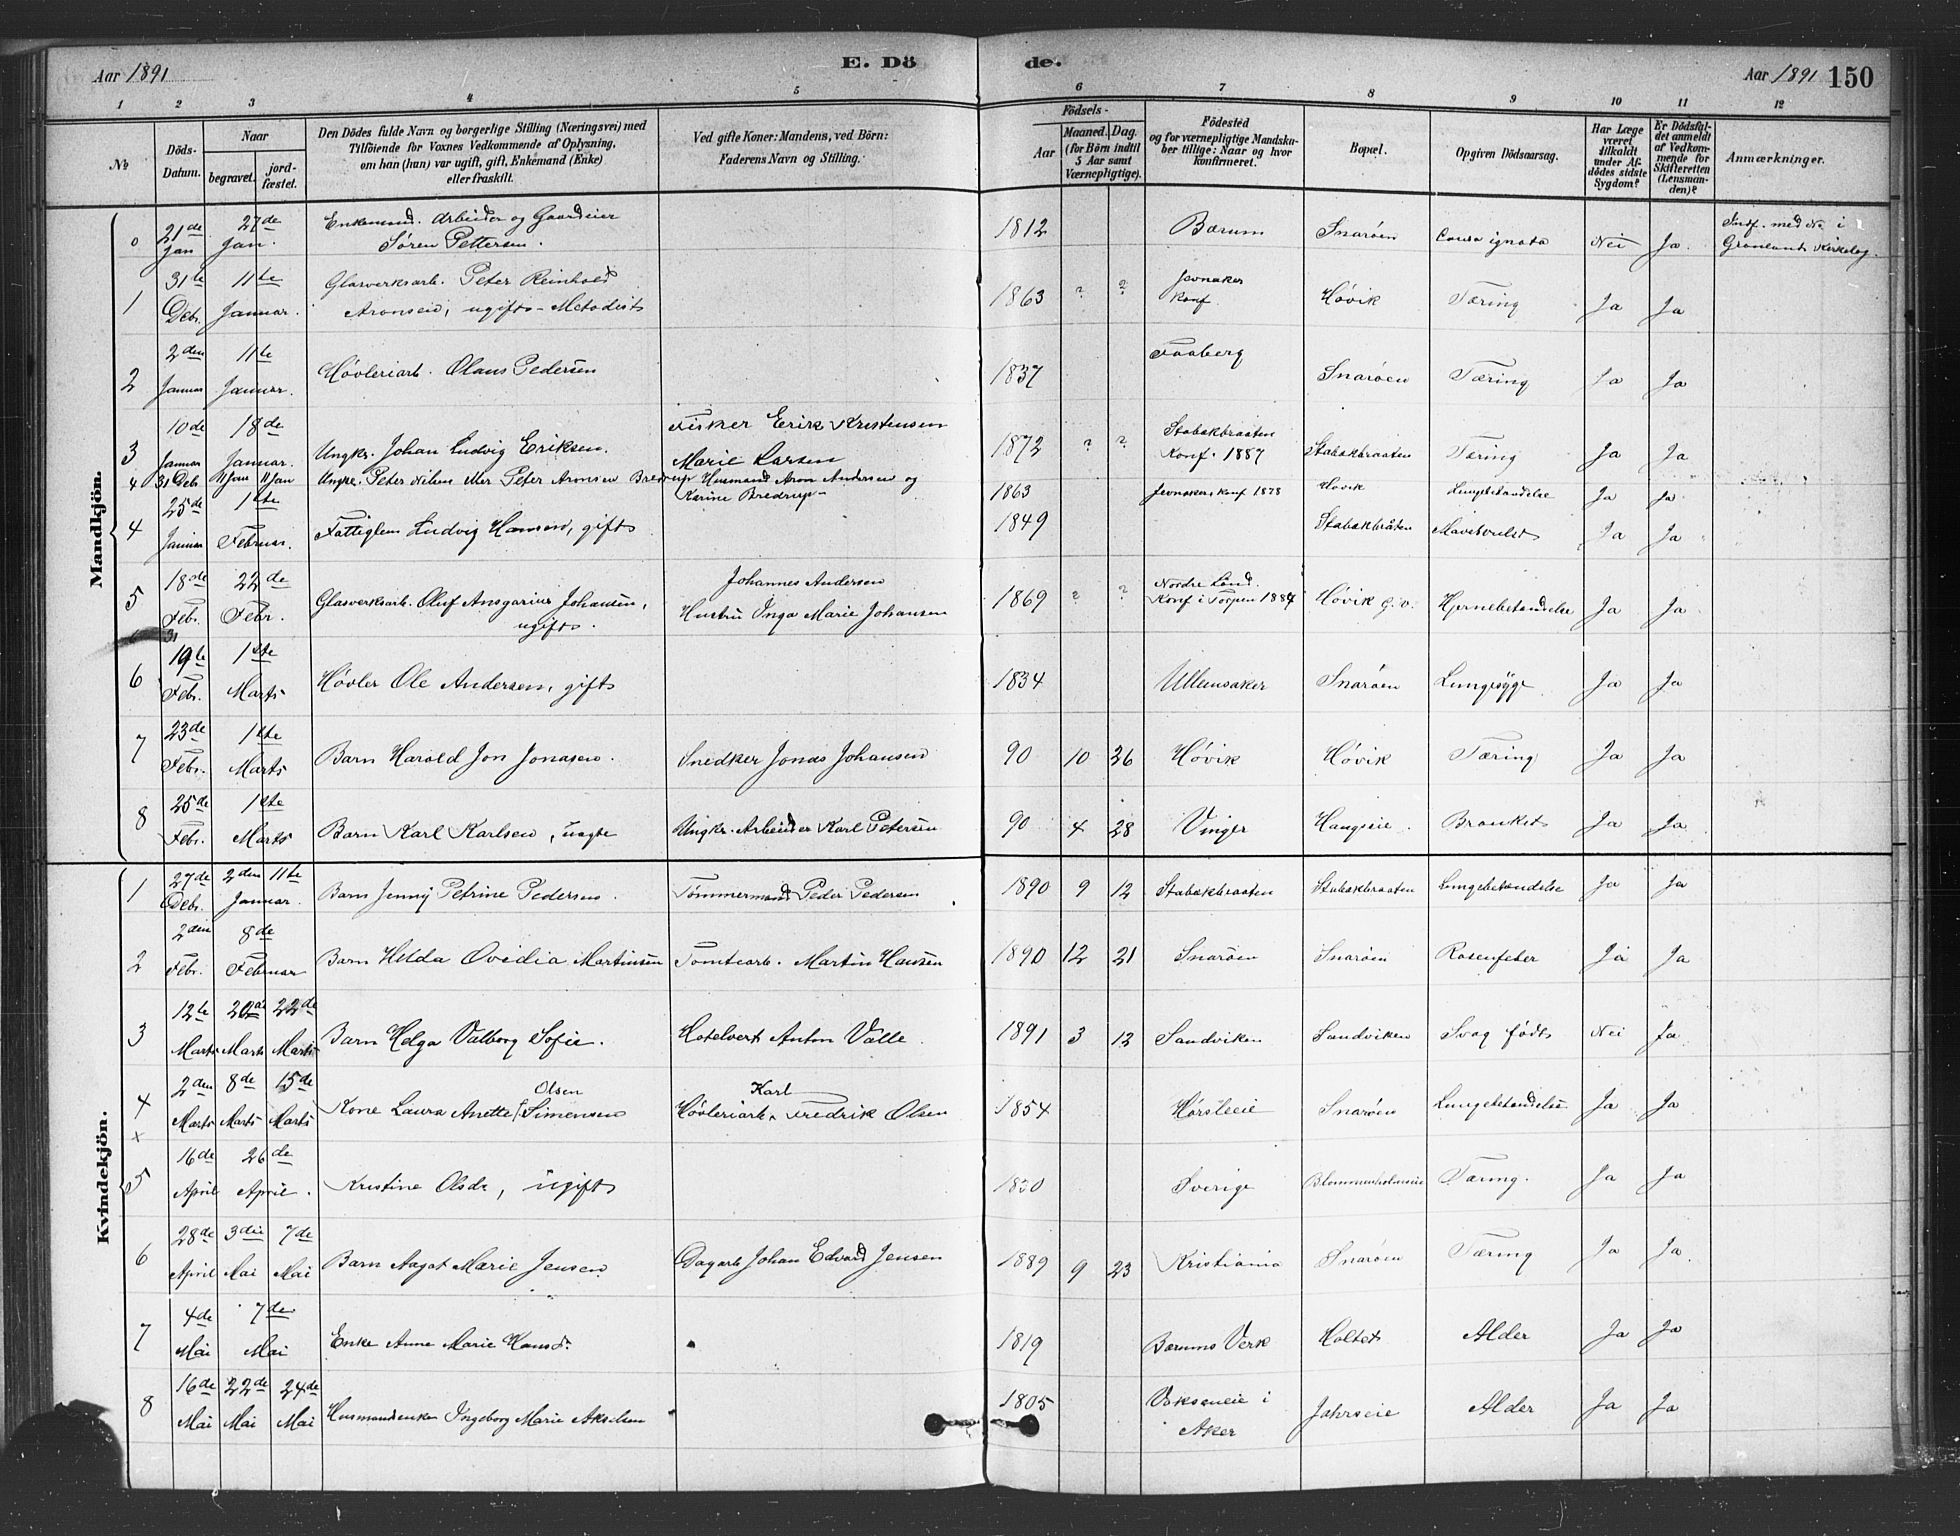 Aar 1891
E. Dö
de.
Aar 1891 150
1 2 3 4 5 6 7 8 9 10 11 12
No
Döds-Datum.
Naar
begravet. jord-fæstet.
Den Dödes fulde Navn og borgerlige Stilling (Næringsvei) med
Tilföiende for Voxnes Vedkommende af Oplysning,
om han (hun) var ugift, gift, Enkemand (Enke)
eller fraskilt.
Ved gifte Koner: Mandens, ved Börn:
Faderens Navn og Stilling.
Födsels-
Aar Maaned. Dag.
(for Börn indtil
5 Aar samt
Værnepligtige).
Födested
og for værnepligtige Mandska-
ber tillige: Naar og hvor
konfirmeret.
Bopæl.
Opgiven Dödsaarsag.
Har Læge
været
tilkaldt
under Af-
dödes sidste
Sygdom?
Er Dödsfal-
det anmeldt
af Vedkom-
mende for
Skifteretten
(Lensman-
den)?
Anmærkninger.
Mandkjön.
0 21de Jan 27de Jan. Enkemand. Arbeider og Gaardeier
Søren Pettersen. 1812 Bærum Snarøen Causa ignota Nei Ja. Indf. med No i
Grønlands Kirkebog.
1 31te Debr. 11te Januar. Glasverksarb. Peter Reinhold
Aronsen, ugift - Metodist 1863 ? ? Jevnaker
Konf. Høvik Tæring Ja Ja
2 2den Januar 11te Januar. Høvleriarb. Olaus Pedersen 1837 Faaberg Snarøen Tæring Ja Ja
3 10de Januar 18de Januar. Ungkr. Johan Ludvig Eriksen. Fisker Erik Kristensen
Marie Larsen 1872 ? ? Stabækbraaten
Konf. 1887 Stabækbraaten Tæring Ja Ja
4 31 Debr 11 Jan 11 Jan Ungkr. Peter Nilsen eller Peter Aronsen Bredrup Husmand Aron Andersen og
Karine Bredrup 1863 Jevnaker, konf 1878 Høvik Lungebetændelse Ja Ja
4 25de Januar 1ste Februar. Fattiglem Ludvig Hansen, gift 1849 Stabækbråten Mavesvulst Ja Ja
5 18de Febr. 22de Febr. Glasverksarb. Oluf Ansgarius Johansen,
ugift. Johannes Andersen
Hustru Inga Marie Johansen 1869 ? ? Nordre Land.
Konf i Torpen 1884 Høvik G.v. Hjernebetændelse Ja Ja
31
6 19de Febr. 1ste Marts Høvler Ole Andersen, gift 1834 Ullensaker Snarøen Lungesyge Ja Ja
7 23de Febr. 1ste Marts Barn Harald Jon Jonasen. Snedker Jonas Johansen 90 10 26 Høvik Høvik Tæring Ja Ja
8 25de Febr. 1ste Marts Barn Karl Karlsen, uægte Ungkr. Arbeider Karl Petersen 90 4 28 Vinger Haugseie. Bronkit Ja Ja
Kvindekjön.
1 27de Debr. 2den 11te Januar. Barn Jenny Petrine Pedersen. Tømmermand Peder Pedersen 1890 9 12 Stabækbraaten Stabækbraaten Lungebetændelse Ja Ja
2 2den Febr. 8de Februar Barn Hilda Ovidia Martinsen Tomtearb. Martin Hansen 1890 12 21 Snarøen Snarøen Rosenfeber Ja Ja
3 12te Marts 20de Marts 22de Marts Barn Helga Valborg Sofie. Hotelvert Anton Valle. 1891 3 12 Sandviken Sandviken Svag født Nei Ja.
4 2den Marts 8de Marts 15de Marts Kone Laura Anette Simensen
Olsen
Karl
Høvleriarb. Fredrik Olsen 1854 Hørsleeie Snarøen Lungebetændelse Ja Ja
x
5 16de April 26de April. Kristine Olsdr, ugift 1830 Sverige Blommenholmeie Tæring. Ja Ja
6 28de April 3die Mai 7de Mai Barn Aagot Marie Jensen. Dagarb Johan Edvard Jensen 1889 9 23 Kristiania Snarøen Tæring Ja Ja
7 4de Mai 7de Mai Enke Anne Marie Hansd. 1819 Bærums Verk Holtet Alder Ja Ja
8 16de Mai 22de Mai 24de Mai Husmandsenke Ingeborg Marie Akselsen 1805 Vokseneie i
Aker Jahrseie Alder Ja Ja